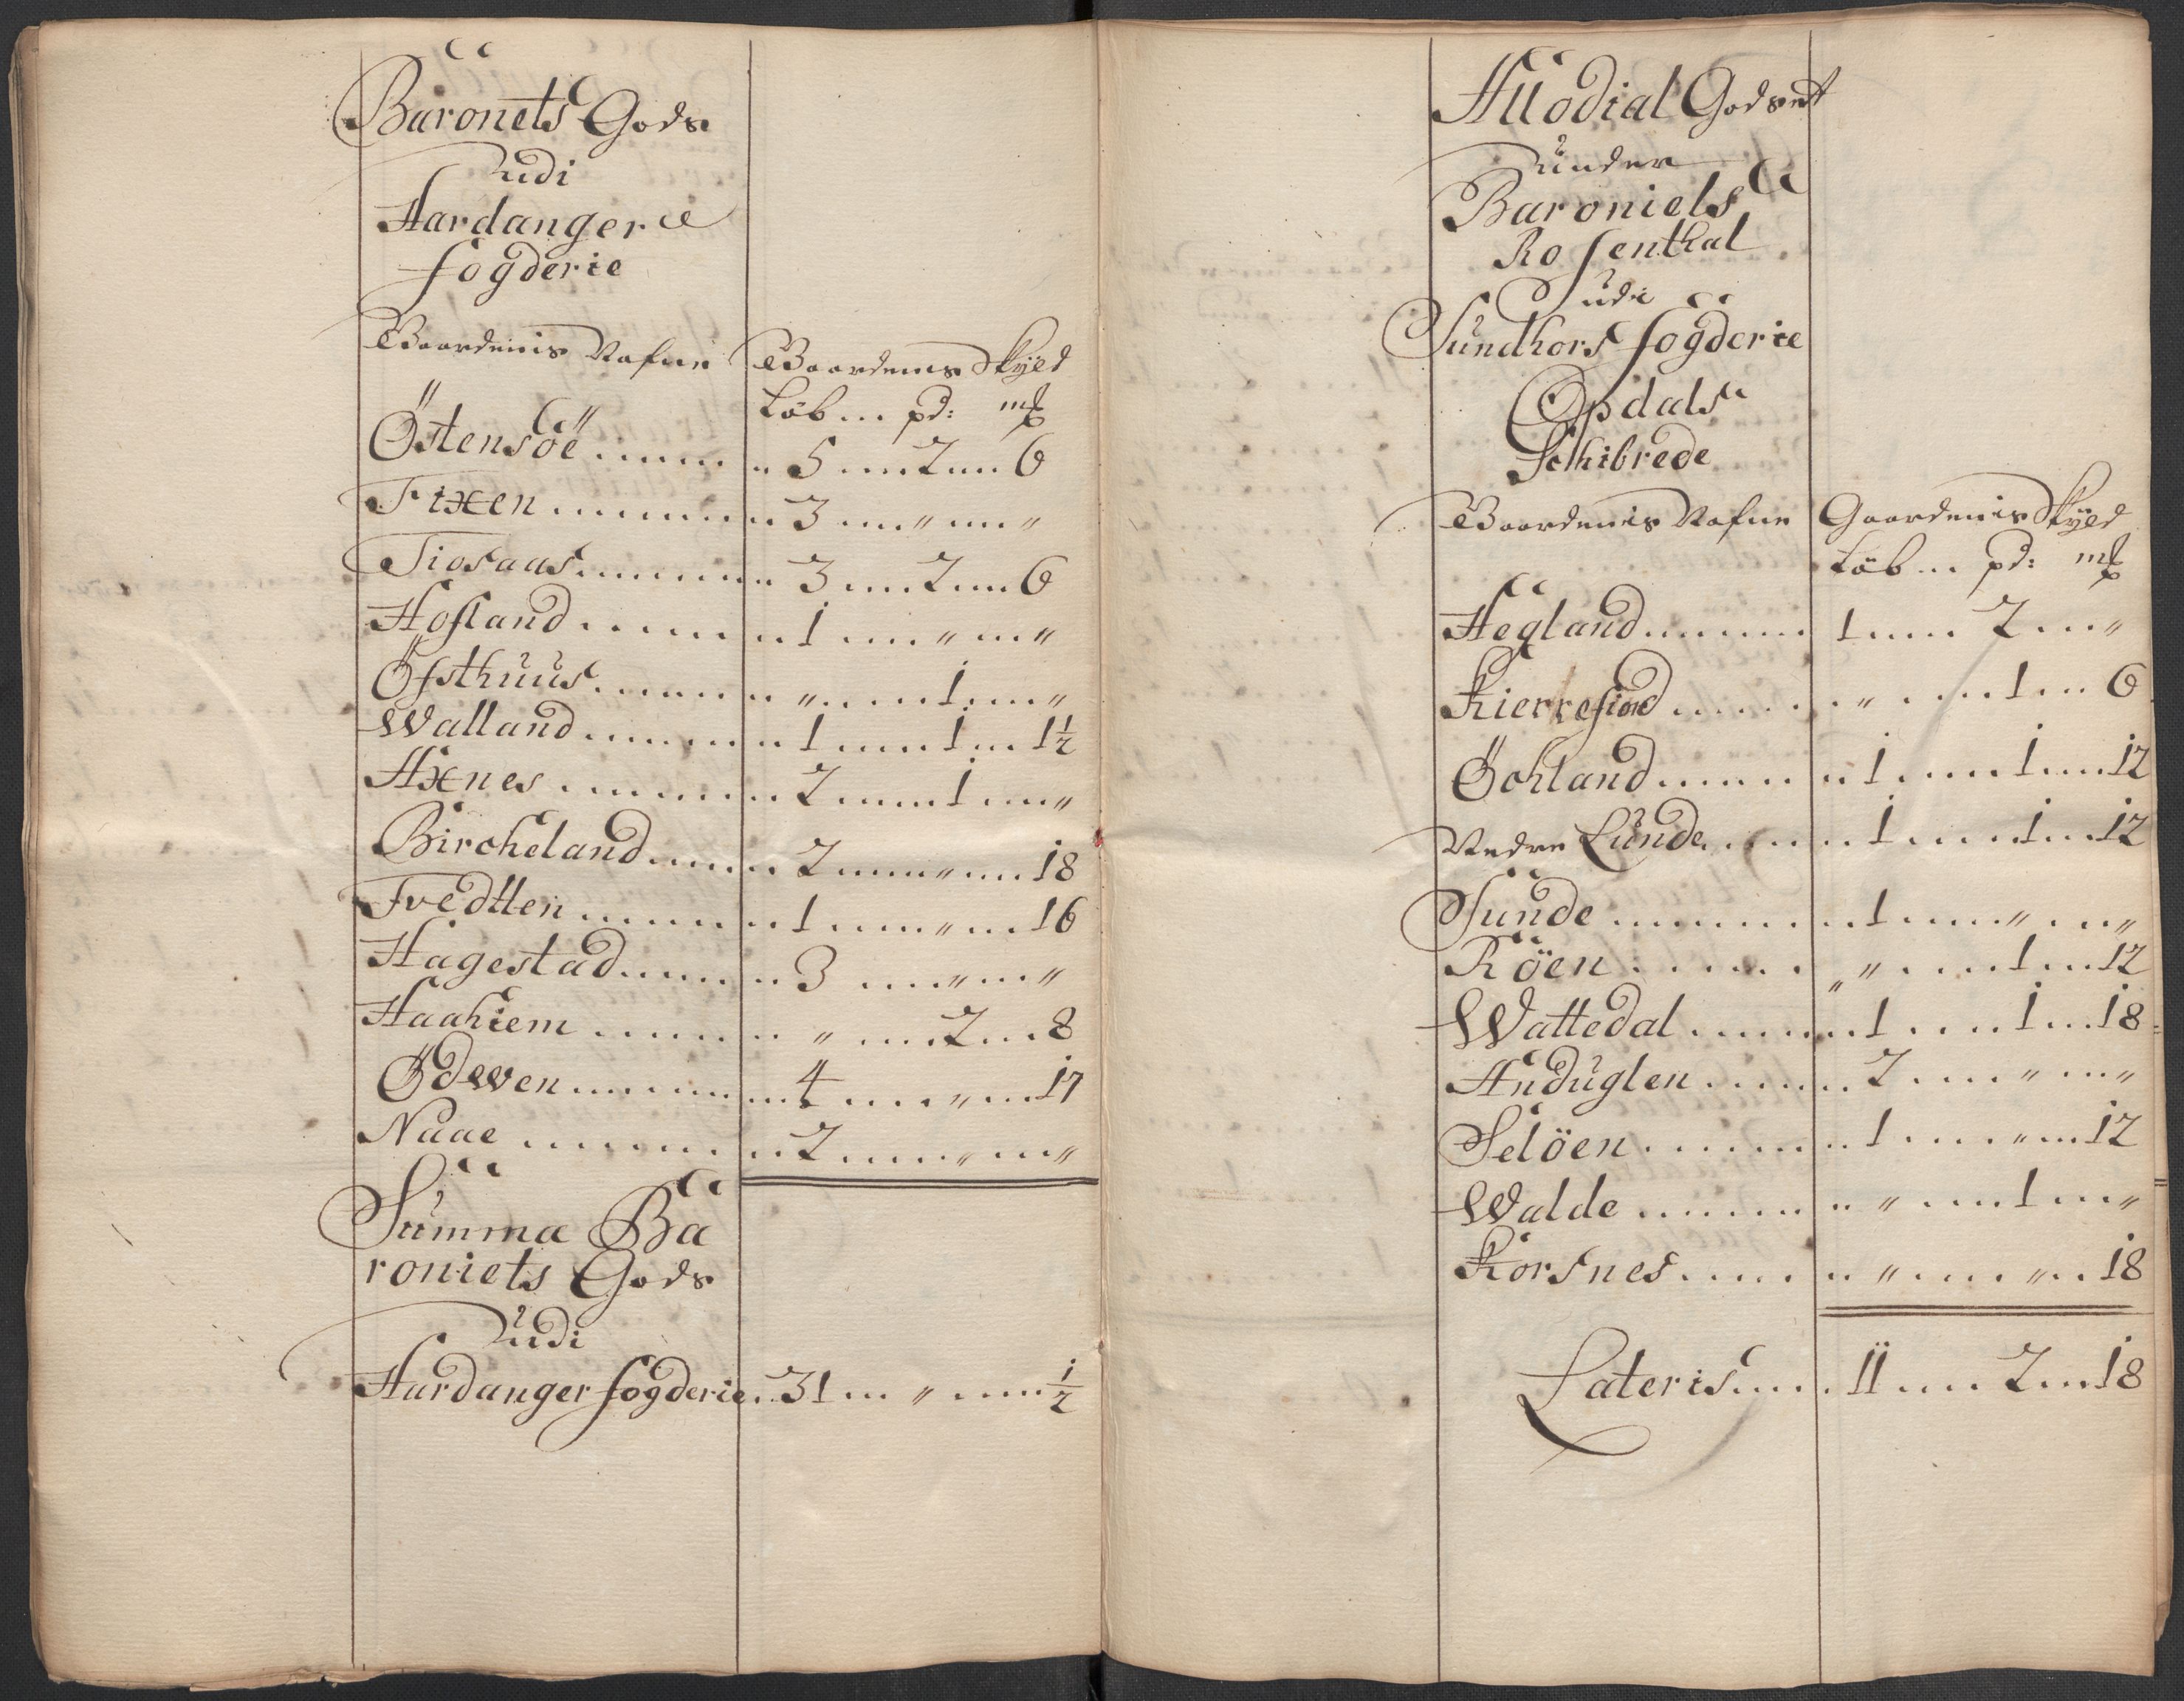 Baronets Gods
udi
Hardanger
fögderie
Gaardenis Nafne Gaardenis Skyld
Löb... pd: m℔
Östensöe ...... 5 ... 2 ... 6
Fixen ...... 3 ... " ... "
Tiosaas ...... 3 ... 2 ... 6
Hofland ...... 1 ... " ... "
Öfsthuus ...... " ... 1 ... "
Walland ...... 1 ... 1 ... 1½
Axnes ...... 2 ... 1 ... "
Bircheland ...... 2 ... " ... 18
Tvedtten ...... 1 ... " ... 16
Hagestad ...... 3 ... " ... "
Haahiem ...... " ... 2 ... 8
Ödwen ...... 4 ... " ... 17
Naae ...... 2 ... " ... "
Summa Ba
roniets Gods
udi
Hardanger fögderie .. 31 ... " ... ½
Allodial Godset
under
Baroniets
Rosenthal
udi
Sundhors fögderie
Opdals
Schibrede
Gaardenis Nafne Gaardenis Skyld
Löb... pd: m℔
Hegland ...... 1 ... 2 ... "
Kierrefiord ...... " ... 1 ... 6
Öchland ...... 1 ... 1 ... 12
Nedre Lunde ...... 1 ... 1 ... 12
Sunde ...... 1 ... " ... "
Röen ...... " ... 1 ... 12
Wattedal ...... 1 ... 1 ... 18
Anduglen ...... 2 ... " ... "
Selöen ...... 1 ... " ... 12
Walde ...... " ... 1 ... "
Korsnes ...... " ... " ... 18
Lateris ...... 11 ... 2 ... 18